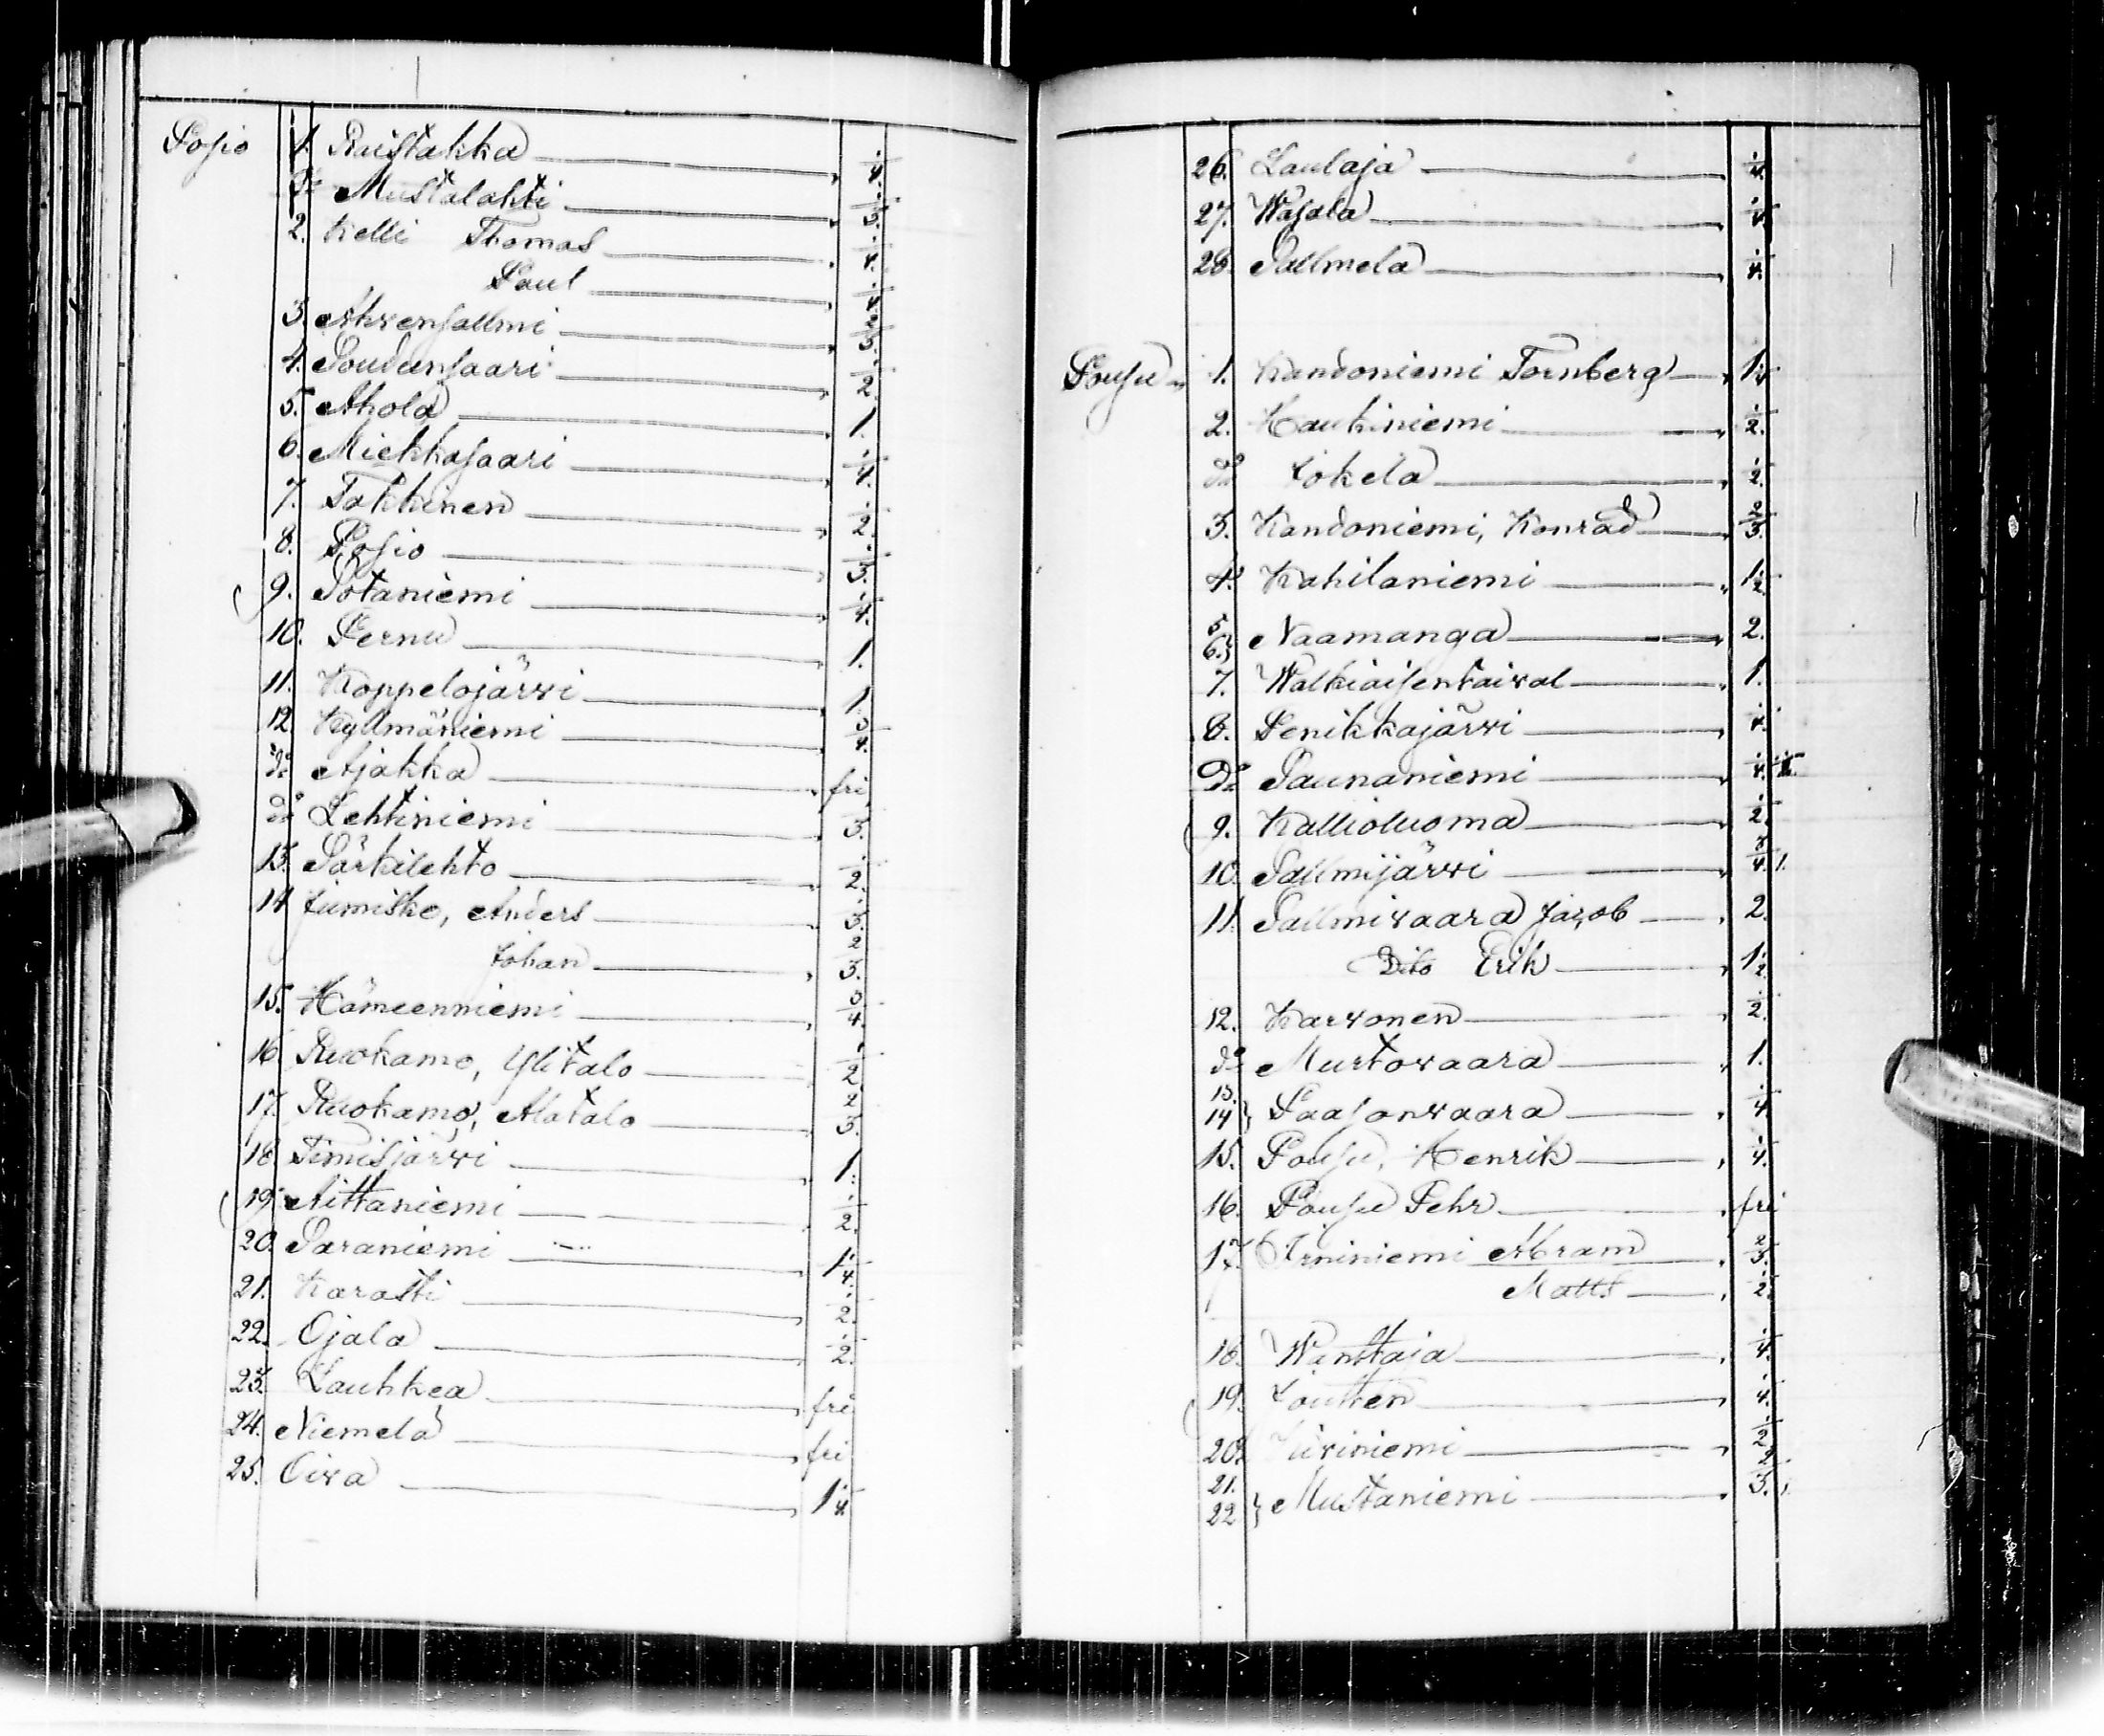 Posio 1. Raistakka 1/4.
do Mustalahti 1/3.
2. Kelli Thomas 1/4.
Paul 1/4.
3. Ahvensallmi 2/3.
4. Soudunsaari 1/2.
5. Ahola 1.
6. Miekkasaari 1/4.
7. Takkinen 1/2.
8. Posio 1/3.
9. Sotaniemi 1/4.
10. Pernu 1.
11. Koppelojärwi 1.
12. Kyllmäniemi 3/4.
do Ajakka fri
do Lehtiniemi 1/3.
13. Särkilehto 1/2.
14 Jumisko, Anders 1/3.
Johan 2/3.
15. Hämeenniemi 3/4.
16 Ruokamo, Ylitalo 1/2.
17. Ruokamo, Alatalo 2/3.
18 Timisjärwi 1.
19. Aittaniemi 1/2.
20. Saraniemi 1 1/4.
21. Karasti 1/2.
22. Ojala 1/2.
23. Lauhkea fri
24. Niemelä fri
25. Oiva 1 1/4
26. Laulaja 1/4.
27. Wasala 1/4.
28. Sallmela 1/4.
Pousu 1. Kandoniemi Tornberg 1 1/4
2. Haukiniemi 1/2.
do Jokela 1/2.
3. Kandoniemi, Konrad 2/3.
4. Kahilaniemi 1 1/2.
5. 6. } Naamanga 2.
7. Walkiaisentaival 1.
8. Penikkajärwi 1/4.
Do Saunaniemi 1/4.
9. Kallioluoma 1/2.
10. Sallmijärwi 3/4. 1.
11. Sallmivaara Jacob 2.
Dito Erik 1 1/2.
12. Karvonen 1/2.
do Murtovaara 1.
13. 14 } Paasonvaara 1/4.
15. Pousu, Henrik 1/4.
16. Pousu Pehr fri
17. Irniniemi Abram 2/3.
Matts 1/2.
18. Wanttaja 1/4.
19. Joutten 1/4.
20. Kiviniemi 1/2.
21. 22 } Mustaniemi 2/3.